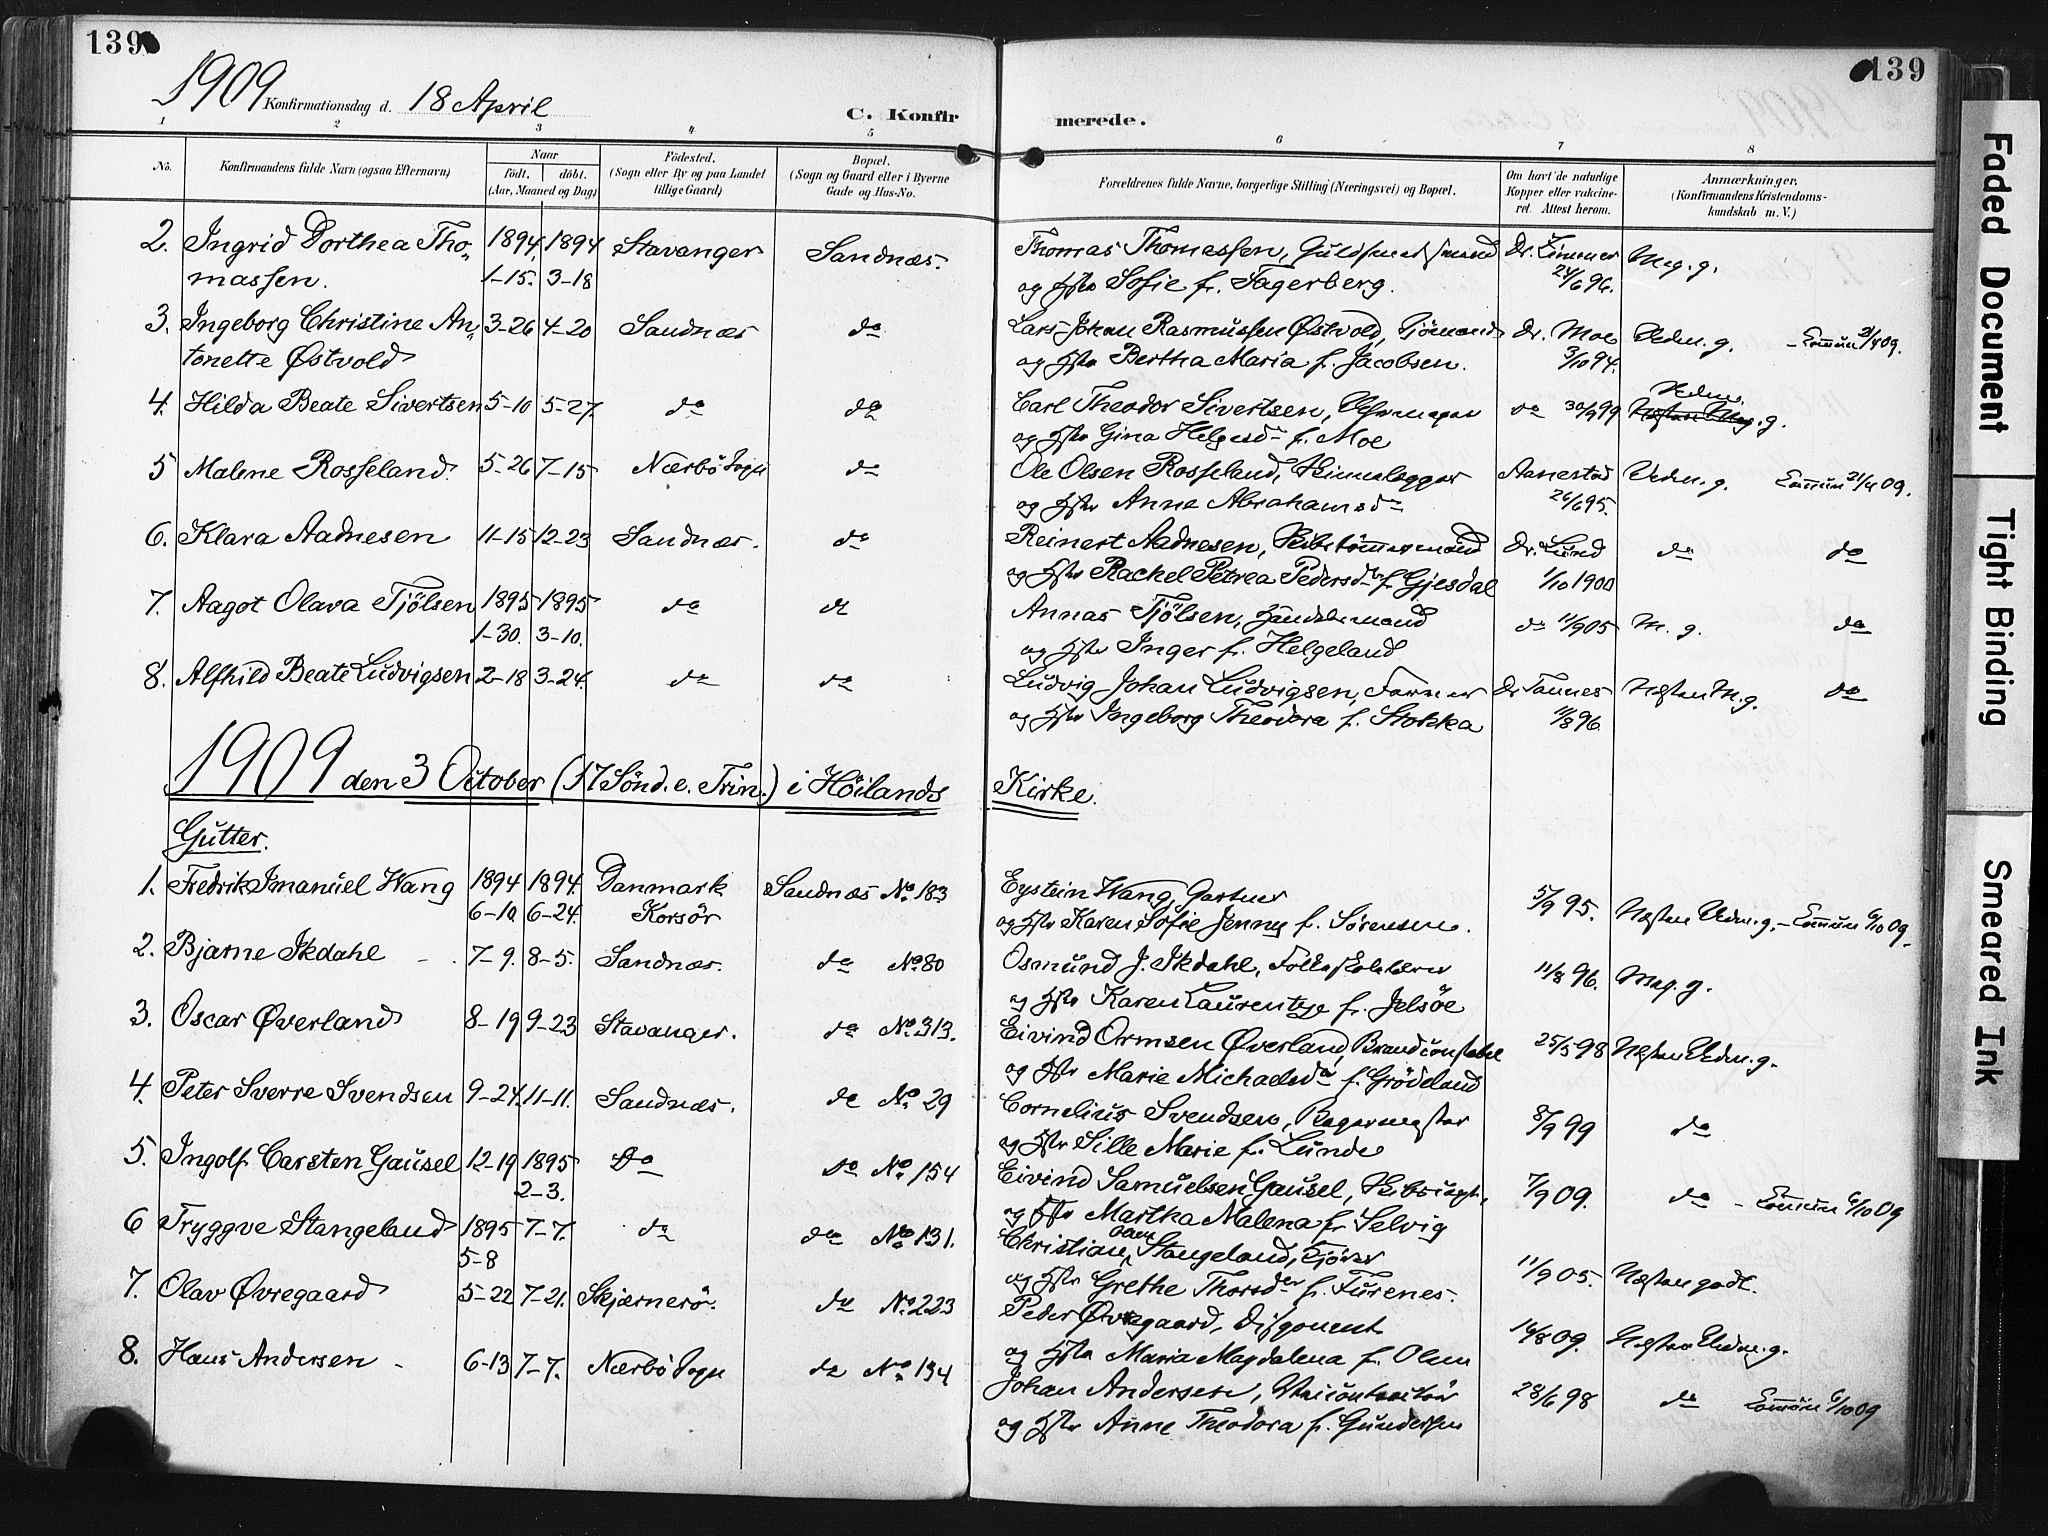 139
139
1909 Konfirmationsdag d. 18 April
C. Konfir merede.
1 2 3 4 5 6 7 8
No.
Konfirmandens fulde Navn (ogsaa Efternavn)
Naar
födt. döbt.
(Aar, Maaned og Dag)
Födested.
(Sogn eller By og paa Landet
tillige Gaard)
Bopæl.
(Sogn og Gaard eller i Byerne
Gade og Hus-No.
Forældrenes fulde Navne, borgerlige Stilling (Næringsvei) og Bopæl.
Om havt de naturlige
Kopper eller vakcine-
ret. Attest herom.
Anmærkninger.
(Konfirmandens Kristendoms-
kundskab m. V.)
2. Ingrid Dorthea Tho- 1894 1894 Stavanger Sandnæs. Thomas Thomassen, Guldsmedsvend Dr. Zimmer Meg. g.
massen. 1-15. 3-18 og Hstr Sofie f. Fagerberg. 24/6 96.
3. Ingeborg Christine An- 3-26 4-20 Sandnæs do Lars Johan Rasmussen Østvold, Dr. Moe Udm. g. 21/4 09.
tonette Østvold og Hstr Bertha Maria f. Jacobsen. 3/10 94.
4. Hilda Beate Sivertsen 5-10 5-27. do do Carl Theodor Sivertsen, do 30/9 99 g.
og Hstr Gina Helgesdr f. Moe
5 Malene Rosseland. 5-26 7-15 Nærbö Sogn do Ole Olsen Rosseland, Aanestad Udm. g. 21/4 09.
og Hstr Anne Abrahamsdr 26/6 95.
6. Klara Aadnesen 11-15 12-23 Sandnæs. do Reinert Aadnesen, Skibstömmermand Dr. Lund do do
og Hstr Rachel Petrea Pedersdr f. Gjesdal 1/10 1900
7. Aagot Olava Tjölsen 1895 1895 do do Annas Tjölsen, Handelsmand do 11/9 05 M. g. do
1-30. 3-10. og Hstr Inger f. Helgeland
8. Alfhild Beate Ludvigsen 2-18 3-24. do do Ludvig Johan Ludvigsen, Dr Tannes Næsten M. g. do
og Hstr Ingeborg Theodora f. Stokka 11/8 96.
1909 den 3 October (17 Sönd. e. Trin.) i Höilands Kirke.
Gutter.
1. Fredrik Imanuel Wang 1894 1894. Danmark Sandnæs No. 183 Eystein Wang, Gartner 5/9 95. Næsten Udm. g. 6/10 09.
6-10 6-24. Korsör og Hstr Karen Sofie Jenny f. Sørensen.
2. Bjarne Skdahl 7-9. 8-5. Sandnæs. do No. 80 Osmund J. Skdahl, Folkeskolelærer 11/8 96. Meg. g.
og Hstr Karen f. Jelsöe
3. Oscar Øverland 8-19 9-23 Stavanger. do No. 313. Eivind Ormsen Øverland, Brandconstabel 25/5 98 Næsten Udm. g.
og Hstr Marie Michaelsdr f. Grödeland
4. Peter Sverre Svendsen 9-24. 11-11. Sandnæs. do No. 29 Cornelius Svendsen, Bagermester 8/9 99 do
og Hstr Sille Marie f. Lunde
5. Ingolf Carsten Gausel 12-19 1895 Do Do No. 154 Eivind Samuelsen Gausel, 7/9 09. do 6/10 09
2-3. og Hstr Martha Malena f. Selvig
6 Tryggve Stangeland 1895 7-7. do do No. 131. Christian Olsen Stangeland, Kjører 11/9 05. Næsten godt.
5-8 og Hstr Grethe Thorsdr f. Furenes.
7. Olav Øvregaard 5-22 7-21. Skjærnerö. do No. 223 Peder Øvregaard, Disponent 16/8 09. Næsten Udm. g.
og Hstr Maria Magdalena f. Olsen
8. Hans Andersen - 6-13 7-7. Nærbö Sogn do No. 134 Johan Andersen, 28/6 98 do 6/10 09
og Hstr Anne Theodora f. Gundersen
Faded Document
Tight Binding
Smeared Ink